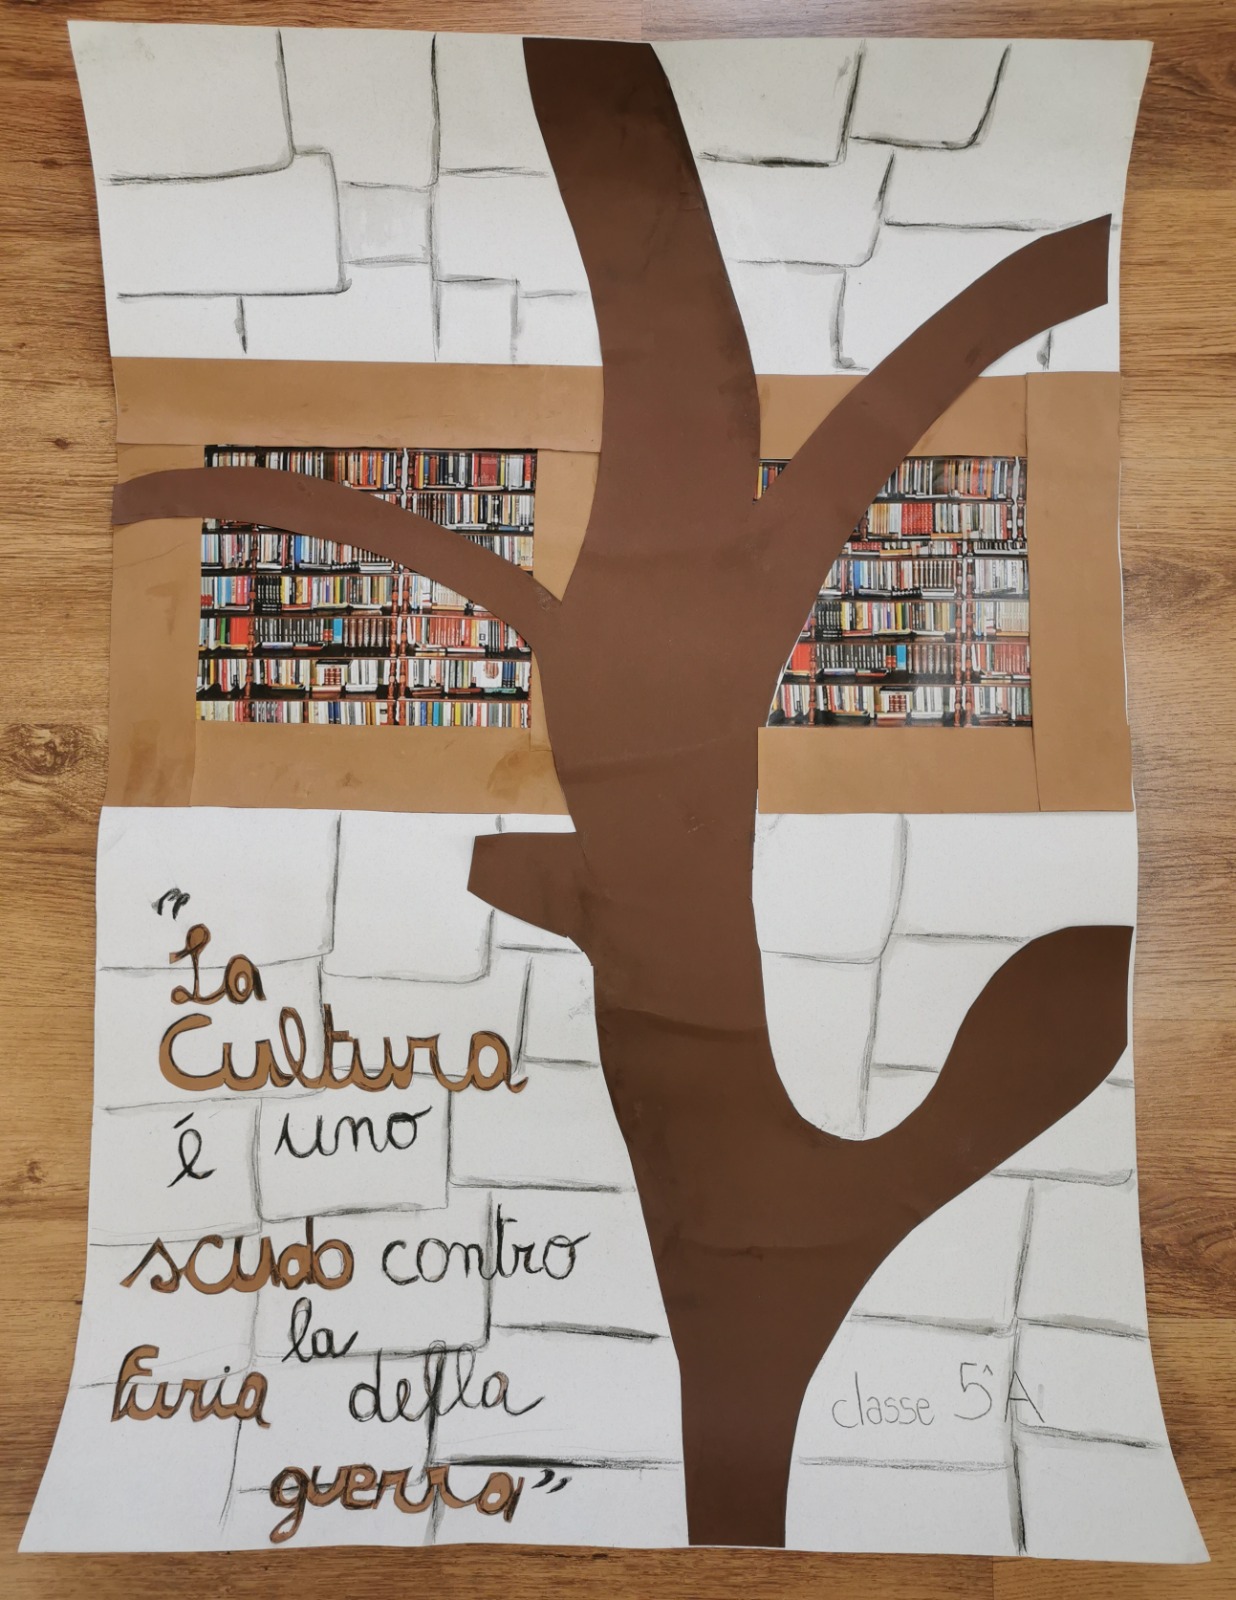 "La
Cultura
é uno
scudo contro
la
furia della
guerra"
classe 5ª A